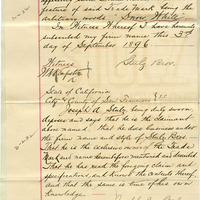 feature of said Trade Mark being the
arbitrary words "Snow White."
In Witness Whereof I have hereunto
subscribed my firm name this 3rd
day of September 1896
Staly Bros.
Witness
State of California
City & County of San Francisco } ss
Joseph A. Staly being duly sworn
deposes and says that he is the claimant
above named that he has business under
the firm name and style of Staly Bros
That he is the exclusive owner of the Trade
Mark and name heretofore
That he has read the foregoing
specification, and knows the contents thereof
and that the same is true of his own
knowledge.